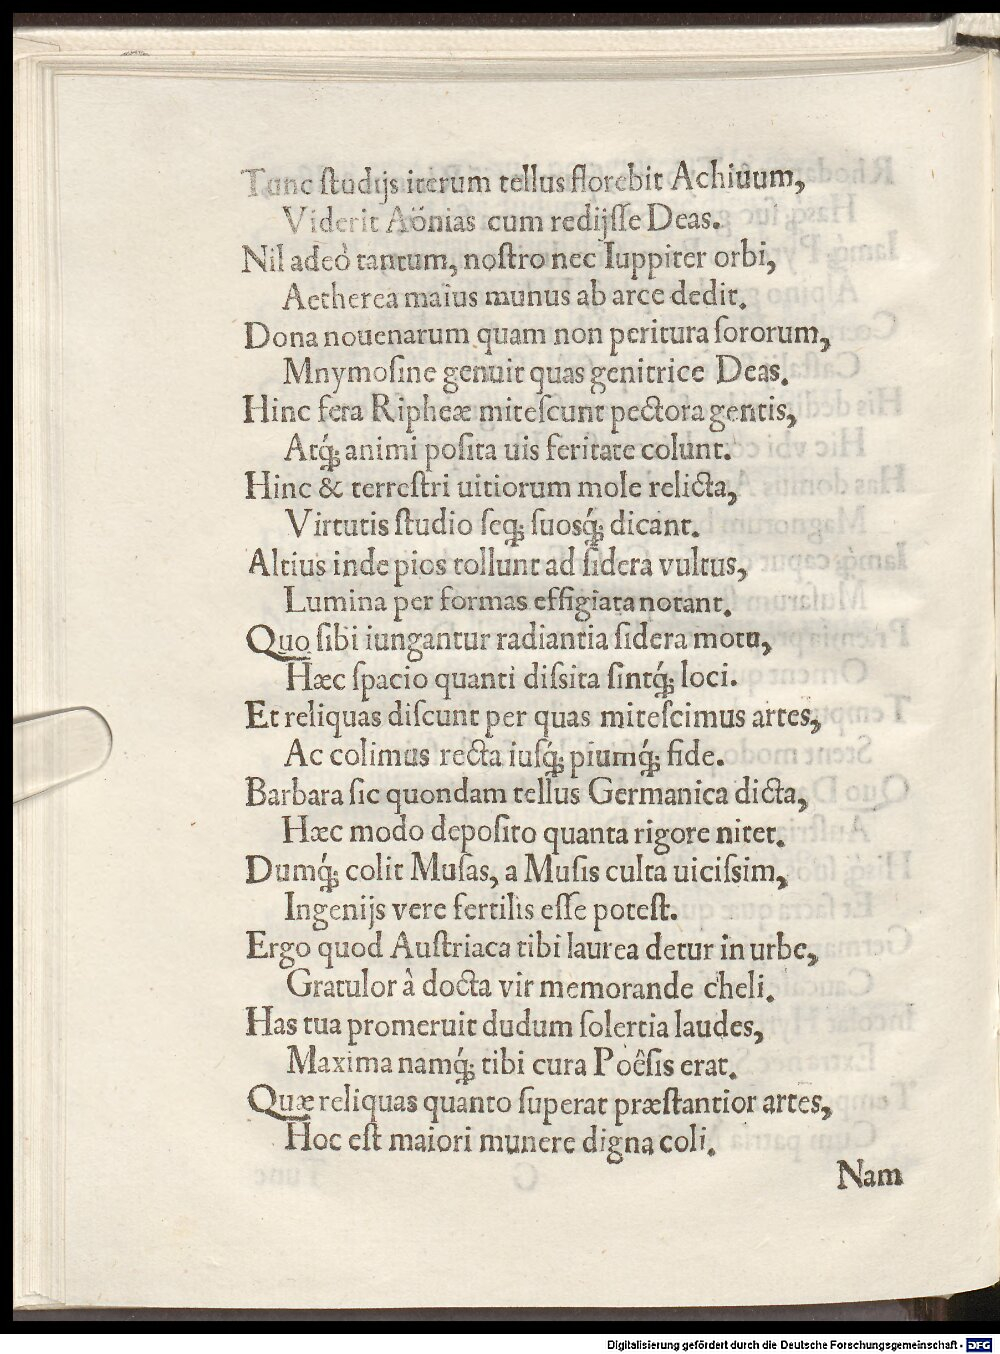 Tunc ſtudijs iterum tellus florebit Achiuum,
Viderit Aönias cum redijſſe Deas.
Nil adeò tantum, noſtro nec Iuppiter orbi,
Aetherea maius munus ab arce dedit.
Dona nouenarum quam non peritura ſororum,
Mnymoſine genuit quas genitrice Deas.
Hinc fera Ripheæ miteſcunt pectora gentis,
Atq́; animi poſita uis feritate colunt.
Hinc & terreſtri uitiorum mole relicta,
Virtutis ſtudio ſeq; ſuosq́; dicant.
Altius inde pios tollunt ad ſidera vultus,
Lumina per formas effigiata notant.
Quo ſibi iungantur radiantia ſidera motu,
Hæc ſpacio quanti diſsita ſintq́; loci.
Et reliquas diſcunt per quas miteſcimus artes,
Ac colimus recta iuſq́; piumq́; fide.
Barbara ſic quondam tellus Germanica dicta,
Hæc modo depoſito quanta rigore nitet.
Dumq́; colit Muſas, a Muſis culta uiciſsim,
Ingenijs vere fertilis eſſe poteſt.
Ergo quod Auſtriaca tibi laurea detur in urbe,
Gratulor à docta vir memorande cheli.
Has tua promeruit dudum ſolertia laudes,
Maxima namq́; tibi cura Poêſis erat.
Quæ reliquas quanto ſuperat præſtantior artes,
Hoc eſt maiori munere digna coli.
Nam
Digitalisierung gefördert durch die Deutsche Forschungsgemeinschaft - DFG